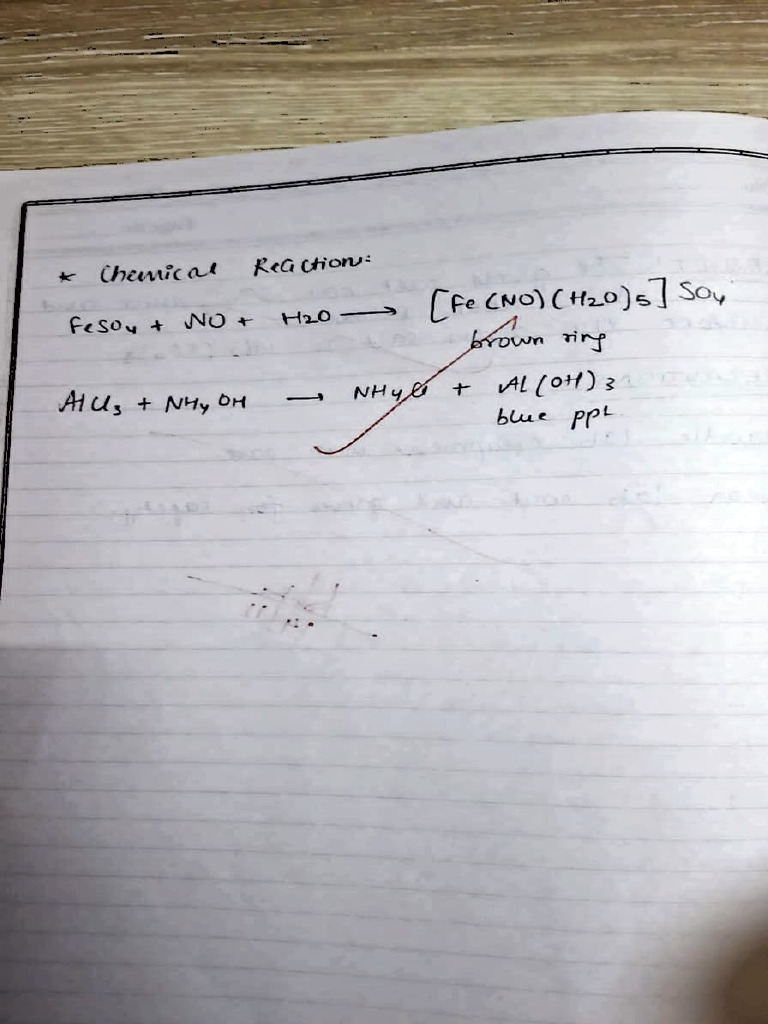 * Chemical Reaction:
FeSO4 + NO + H2O → [Fe(NO)(H2O)5]SO4
brown ring
AlCl3 + NH4OH → NH4Cl + Al(OH)3
blue ppt